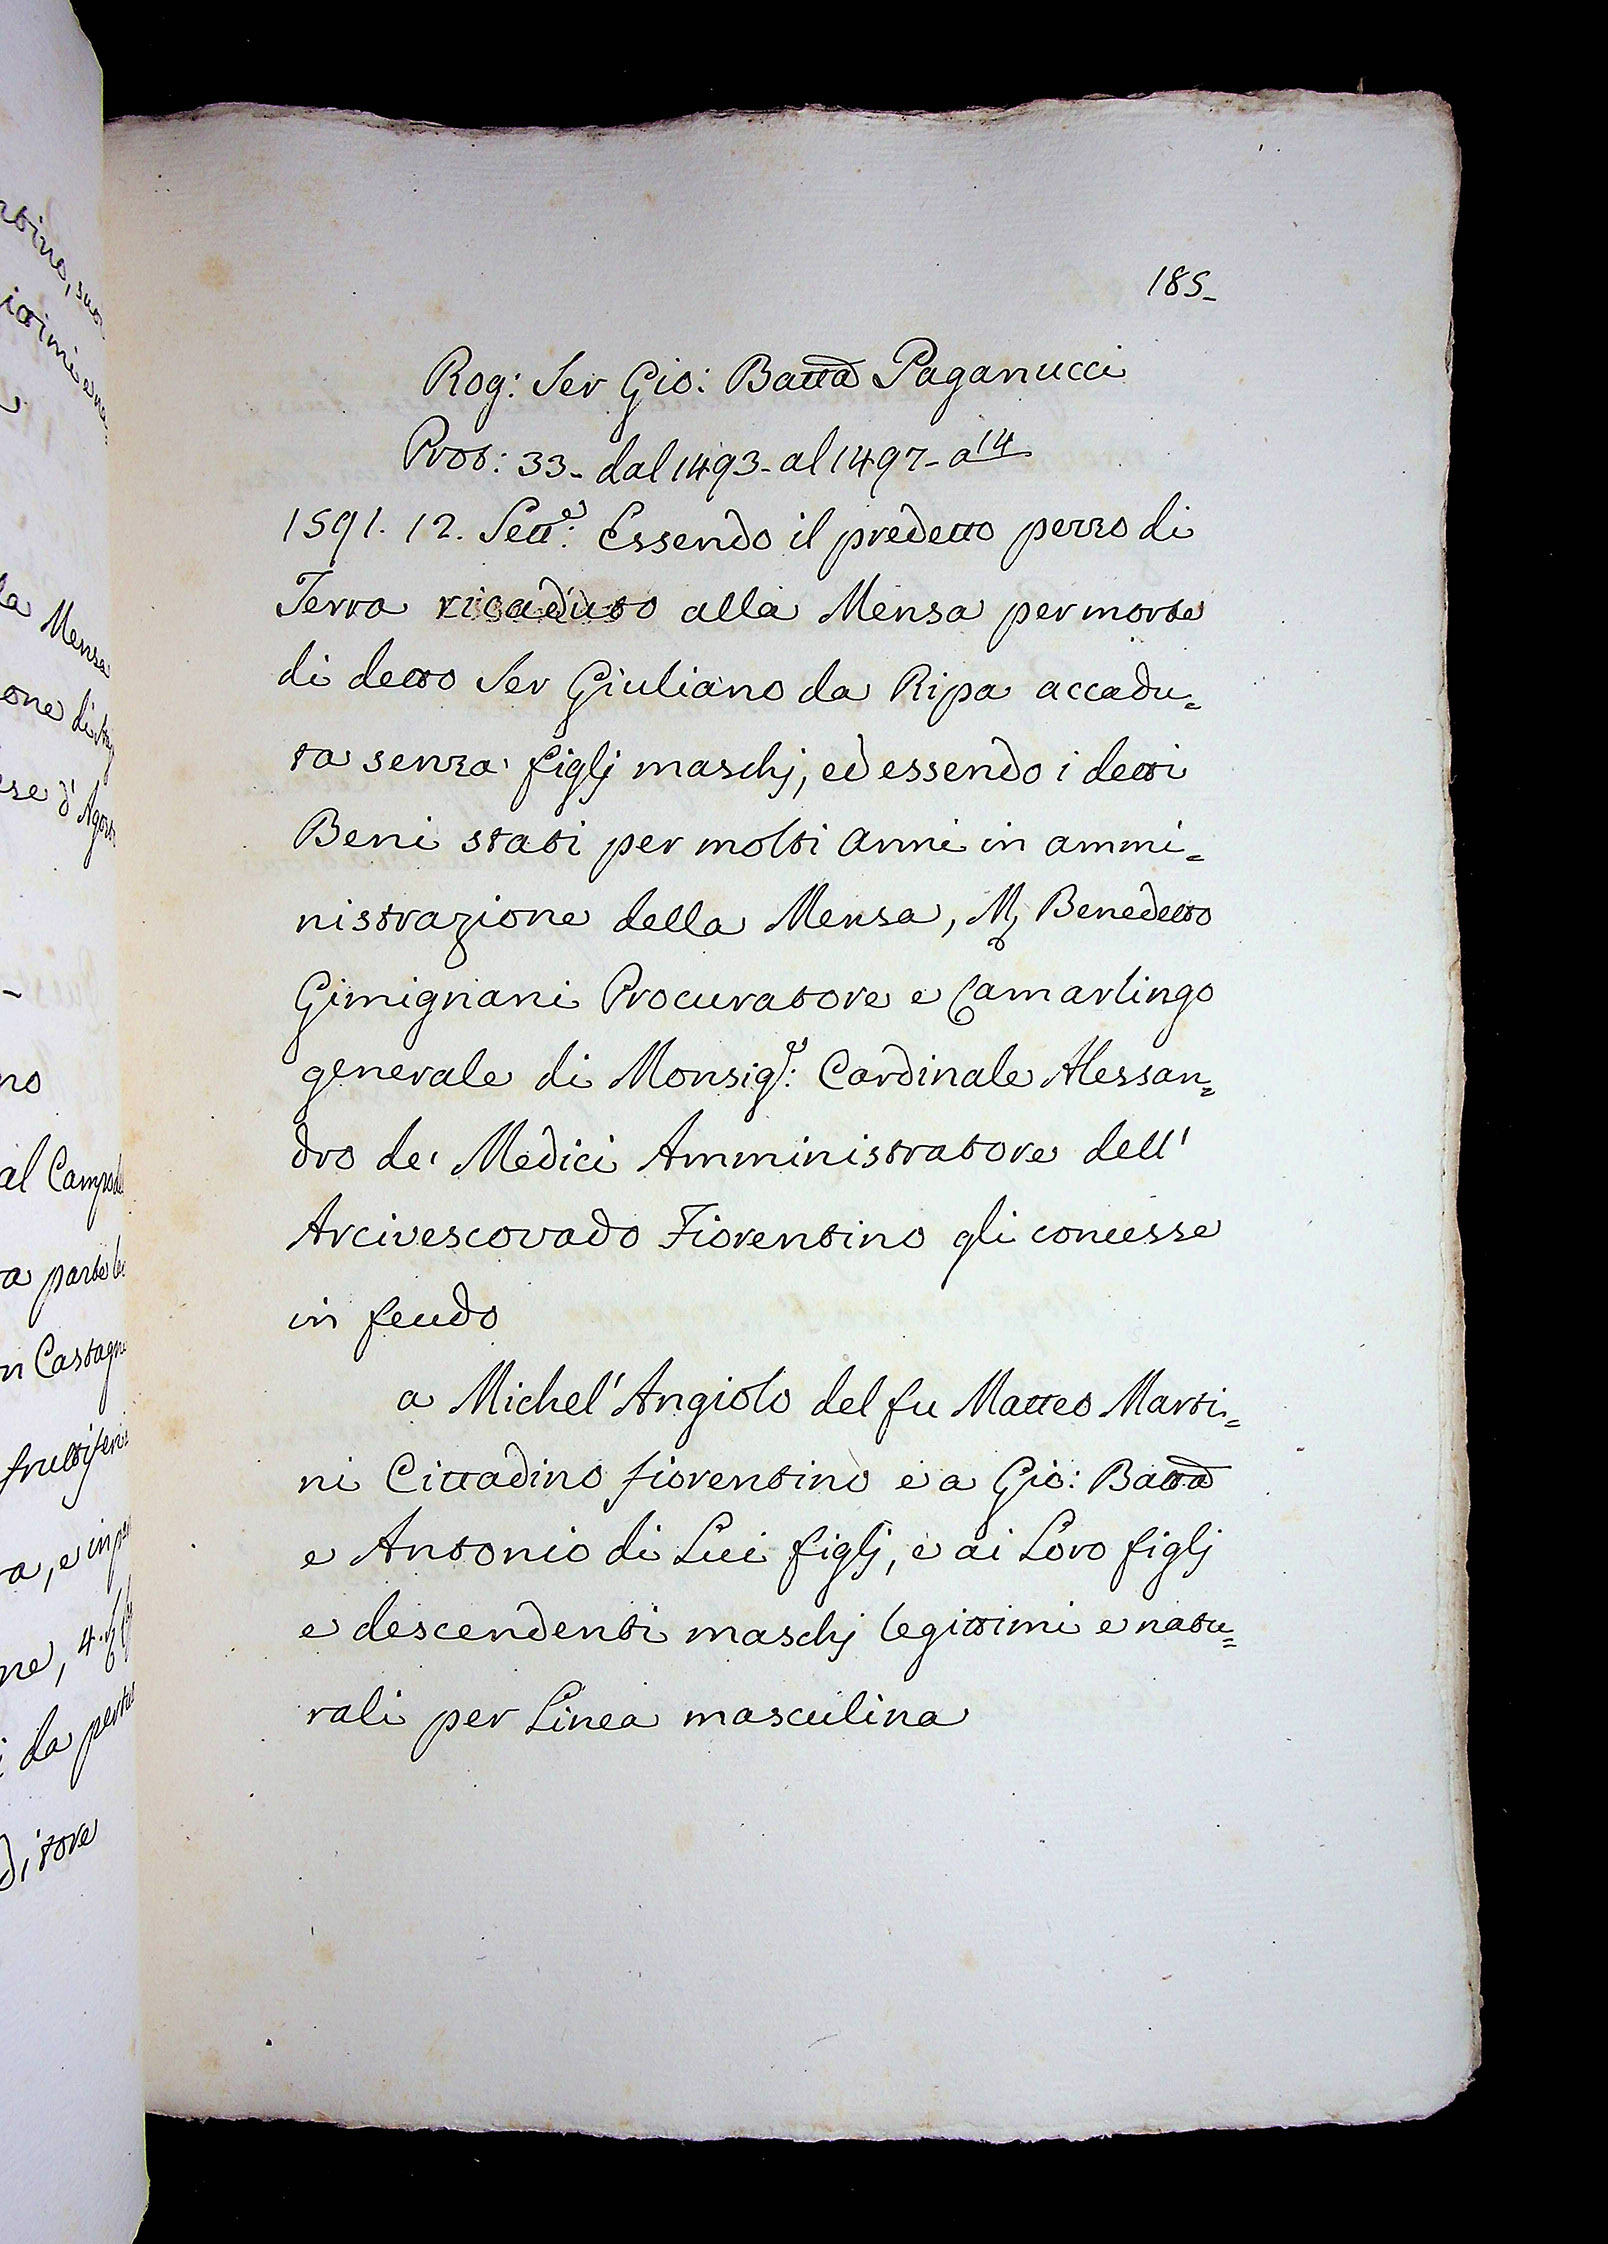 185_
Rog: Ser Gio: Batta Paganucci
Prot: 33_ dal 1493_ al 1497_ a 14
1591. 12. Sett.e: Essendo il predetto pezzo di
Terra ricaduto alla Mensa per morte
di detto Ser Giuliano da Ripa accadu=
ta senza figlj maschj, ed essendo i detti
Beni stati per molti anni in ammi=
nistrazione della Mensa, M, Benedetto
Gimignani Procuratore e Camarlingo
generale di Monsig.e: Cardinale Alessan=
dro de' Medici Amministratore dell'
Arcivescovado Fiorentino gli concesse
in feudo
a Michel'Angiolo del fu Matteo Marti=
ni Cittadino fiorentino e a Gio: Batta
e Antonio di Lui figlj, e ai Loro figlj
e descendenti maschj legittimi e natu=
rali per Linea masculina
la Mensa
one di
ese d'Agosto
no
al Campo
a parte
n Castagn
fruttiferi
a, e in
ne, 4.
i da
ditore